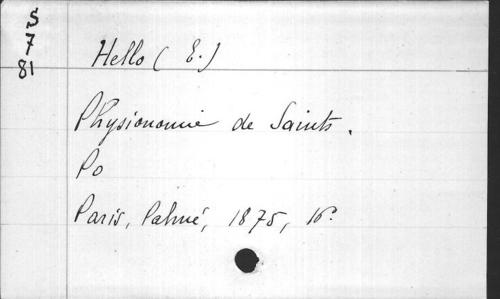 S
7
81
Hello (E.)
Physionomie de Saints.
Po
Paris, Palmé, 1875, 16º.